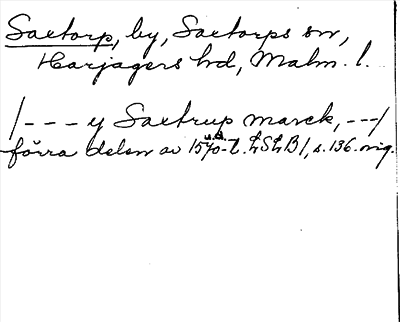 Saxtorp, by, Saxtorps sn,
Harjagers hd, Malm. l.
/--- y Saxtrup marck, ---/
förra delen av 1570-t. LSLB 1, s. 136. orig.